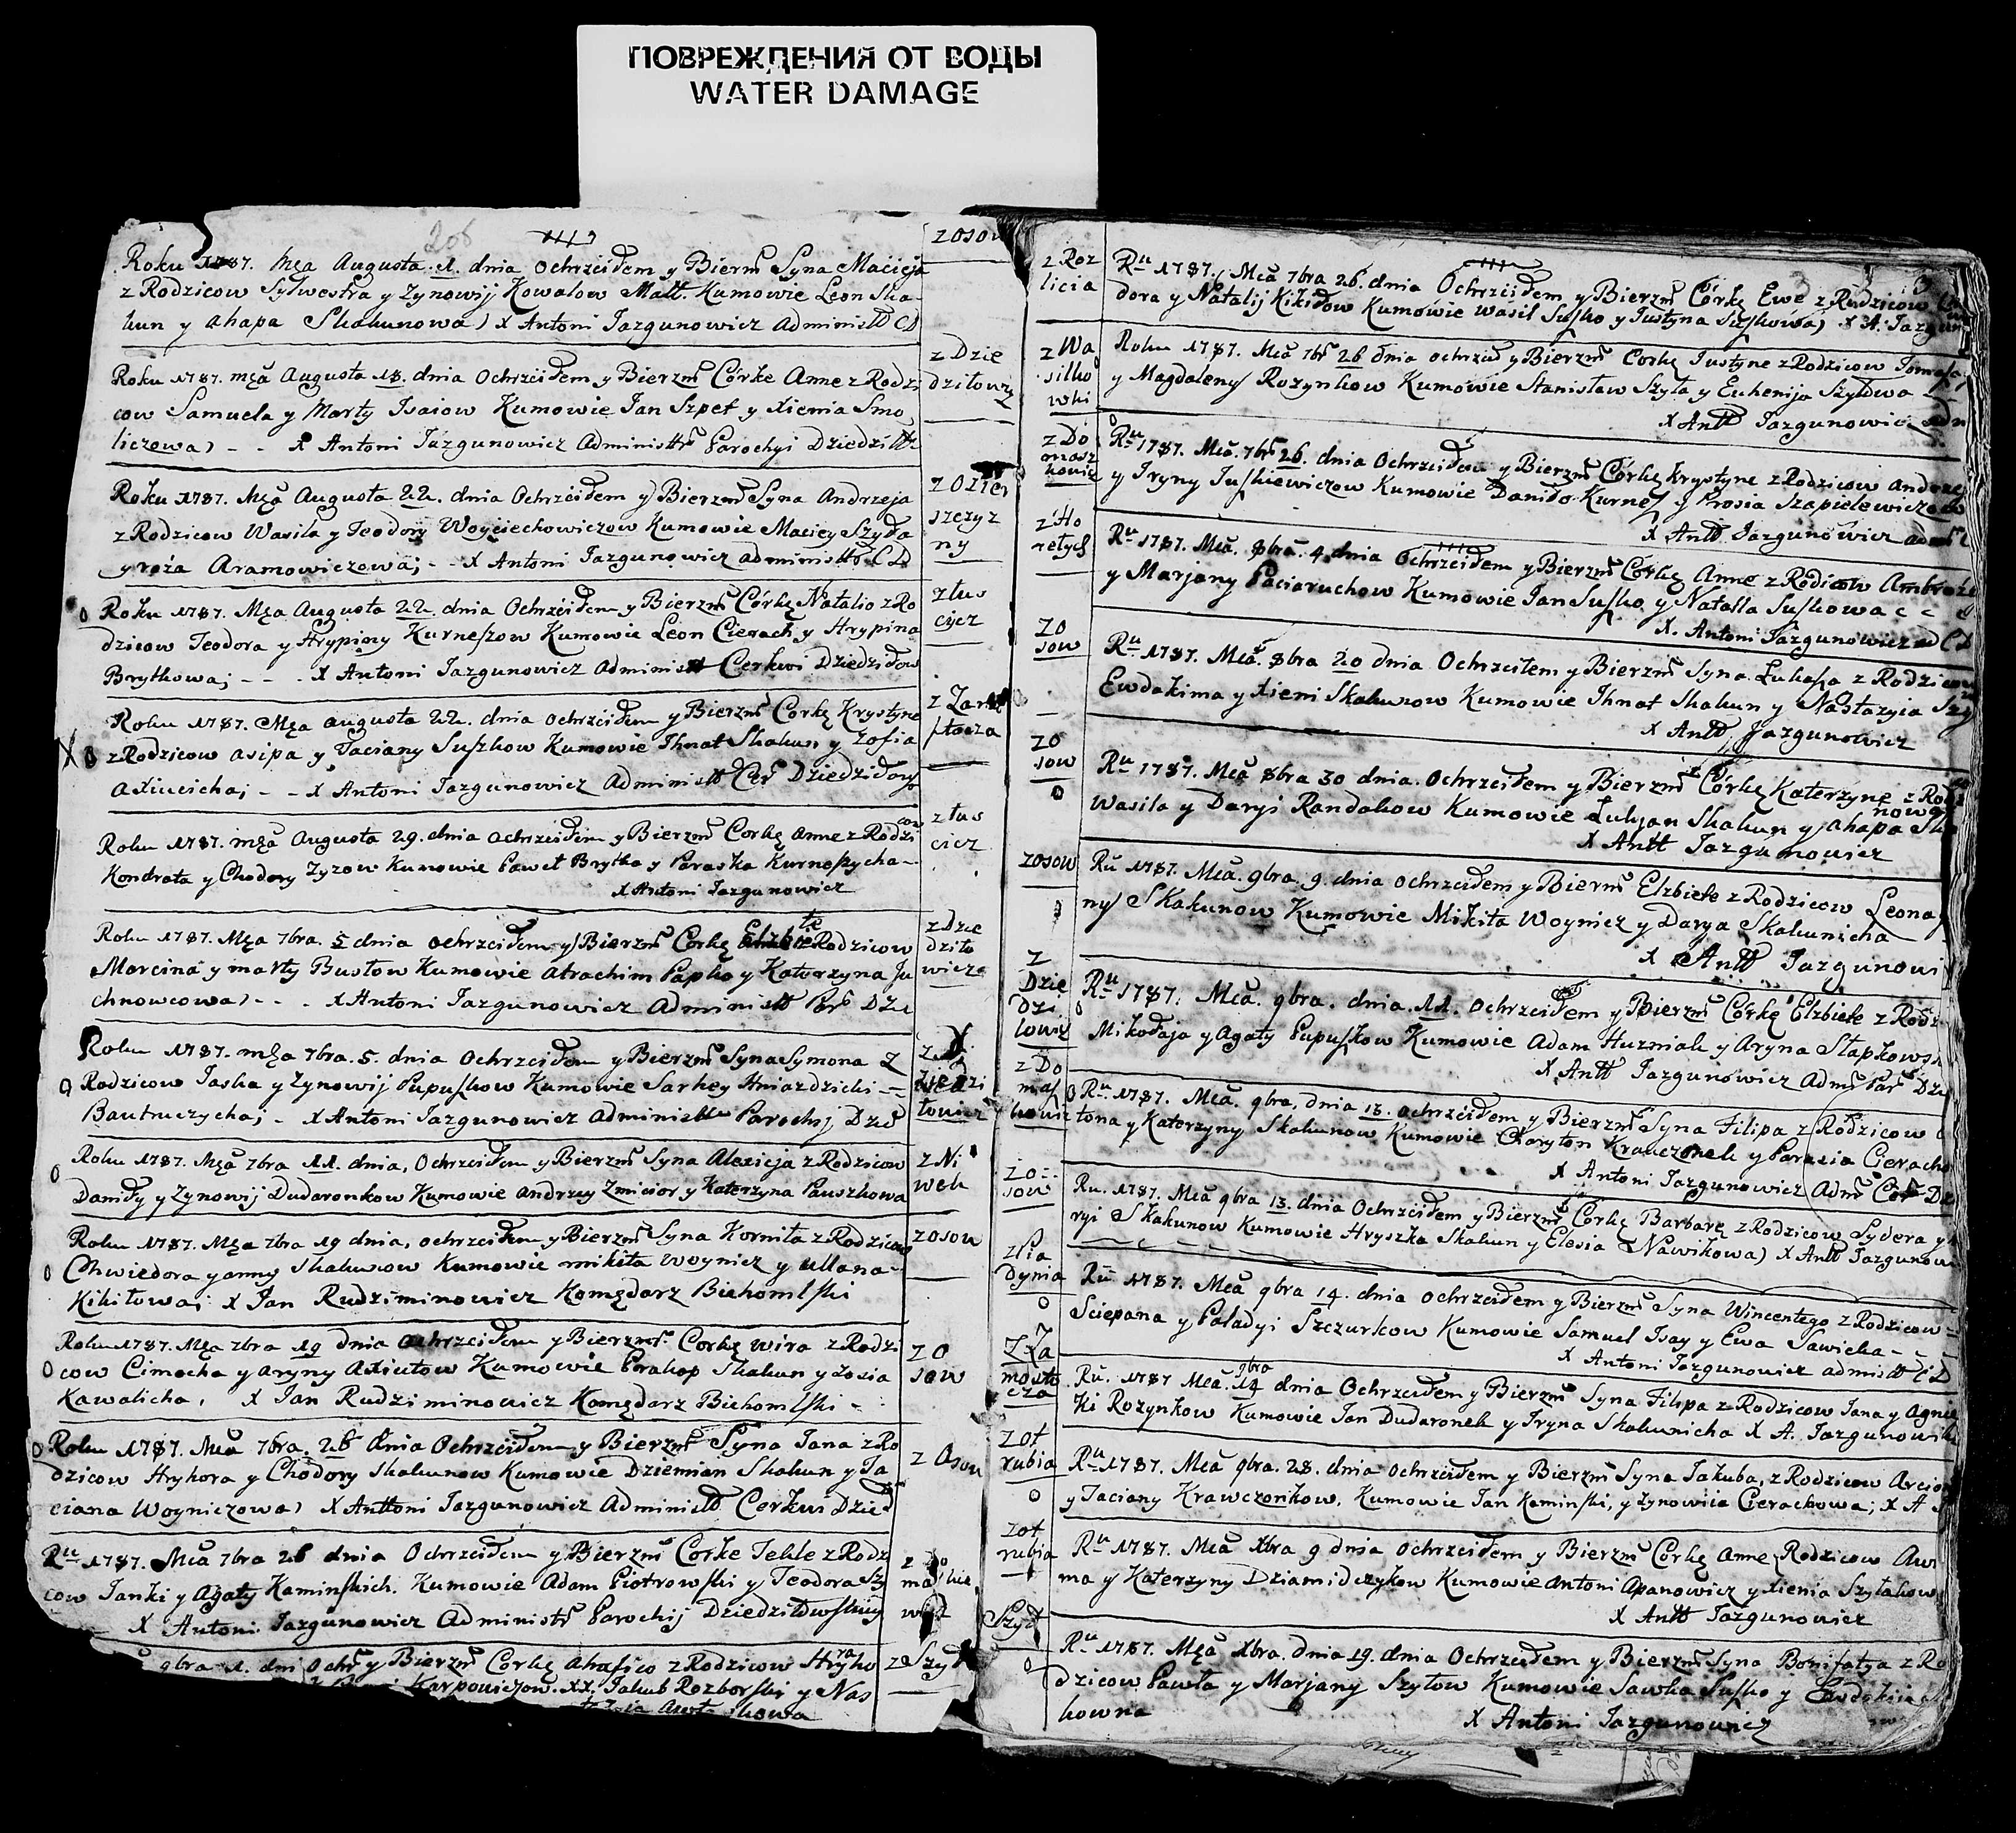 ПОВРЕЖДЕНИЯ ОТ ВОДЫ
WATER DAMAGE
206
Roku 1787. Mca Augusta 1. dnia Ochrzciłem y Bierzm Syna Macieja
z Rodzicow Sylwestra y Zynowij Kowalow Małł. Kumowie Leon Ska
kun y Ahapa Skakunowa) X Antoni Jazgunowicz Administ CD
z Osow
Roku 1787. mca Augusta 18. dnia Ochrzciłem y Bierzm Córke Anne z Rodzi
cow Samuela y Marty Isaiow Kumowie Jan Szpet y Xienia Smo
liczowa) - - X Antoni Jazgunowicz Administr Parochyi Dziedziłł
z Dzie
dziłowicz
Roku 1787. Mca Augusta 22. dnia Ochrzciłem y Bierzm Syna Andrzeja
z Rodzicow Wasila y Teodory Woyciechowiczow Kumowie Maciey Szyła
y roża Aramowiczowa; - - X Antoni Jazgunowicz administr CD
z Ozier
szczyz
ny
Roku 1787. Mca Augusta 22. dnia Ochrzciłem y Bierzm Córkę Natalio z Ro
dzicow Teodora y Hrypiny Kurneszow Kumowie Leon Cierach y Hrypina
Brytkowa; - - - X Antoni Jazgunowicz Administ Cerkwi Dziedziłow
z Łus
cicz
Roku 1787. Mca augusta 22. dnia ochrzciłem y Bierzm Corkę Krystyne
z Rodzicow asipa y Taciany Suszkow Kumowie Ihnat Skakun y Zofia
Axiucicha; - - X Antoni Jazgunowicz Administ Cer Dziedziłow
z Zam
stocza
Roku 1787. mca Augusta 29. dnia ochrzciłem y Bierz Corkę Anne z Rodzi cow
Kondrata y Chodory Zyzow Kumowie Paweł Brytka y Paraska Kurneszycha
X Antoni Jazgunowicz
z Łus
cicz
Roku 1787. Mca 7bra. 5 dnia ochrzciłem y Bierzm Corkę Elzbie te Rodzicow
Marcina y marty Bustow Kumowie Atrachim Papko y Katerzyna Ju
chnowcowa) - - . X Antoni Jazgunowicz Administ Par Dzie
z Dzie
dziło
wicze
Roku 1787. mca 7bra. 5. dnia Ochrzciłem y Bierzm Syna Symona z
Rodzicow Jaska y Zynowij Pupuszkow Kumowie Sarhey Hniazdzicki -
Bautruczycha; - X Antoni Jazgunowicz Administr Parochij Dzie
z
Dziedzi
łowicz
Roku 1787. Mca 7bra 11. dnia, Ochrzciłem y Bierzm Syna Alexieja z Rodzicow
Daniły y Zynowij Dudaronkow Kumowie Andrzey Zmicior y Katerzyna Pauszkowa
z Ni
wek
Roku 1787. Mca 7bra 19 dnia, ochrzciłem y Bierzm Syna Korniła z Rodzicow
Chwiedora y anny Skakunow Kumowie mikita Woynicz y Ullana
Kikiłowa; X Jan Rudziminowicz Komędarz Biehomlski
z Osow
Roku 1787. Mca 7bra 19 dnia ochrzciłem y Bierzm. Corkę wira z Rodzi
cow Cimocha y aryny Axiutow Kumowie Prakop Skakun y Zosia
Kawalicha, X Jan Rudziminowicz Komędarz Biehomlski -
z O
sow
Roku 1787. Mca 7bra. 26 dnia Ochrzciłem y Bierzm Syna Jana z Ro
dzicow Hryhora y Chodory Skakunow Kumowie Dziemian Skakun y Ta
ciana Woyniczowa) X Anttoni Jazgunowicz Administ Cerkwi Dzied
z Osow
Ru 1787. Mca 7bra 26 dnia Ochrzciłem y Bierzm Corke Tekle z Rodzi
cow Janki y Agaty Kaminskich. Kumowie Adam Piotrowski y Teodora Szy
X Antoni Jazgunowicz Administr Parochij Dziedziłowskiey
z Do
maszke
wicz
9bra 1. dni Ochr y Bierzm Corkę Ahafico z Rodzicow Hryho ra
Karpowiczow. XX. Jakub Rozborski y Nas
z Szył
z Roz
licia
Ru 1787. Mca 7bra 26. dnia Ochrzciłem y Bierzm Córkę Ewe z Rodzicow
dora y Natalij Kikiłow Kumowie Wasil Susko y Justyna Suszkowa) X A. Jazgun
z Wa
silko
wki
Roku 1787. Mca 7br 26 dnia ochrzci y Bierzm Corkę Justyne z Rodzicow Tomasza
y Magdaleny Rozynkow Kumowie Stanisław Szyła y Euhenija Szyłowa
X Antt Jazgunowicz adm
z Do
masz
kowic
Ru 1787. Mca. 7br 26. dnia Ochrzciłem y Bierzm Córkę Krystyne z Rodzicow Andrze
y Iryny Juszkiewiczow Kumowie Daniło Kurnesz y Prosia Szapielewiczowa
X Antt Jazgunowicz adm C
z Ho
rełych
Ru 1787. Mca. 8bra. 4. dnia Ochrzciłem y Bierzm Córkę Anne z Rodicow Ambroże
y Marjany Paciaruchow Kumowie Jan Susko y Natalla Suszkowa
X. Antoni Jazgunowicz ad CD
z O
sow
Ru 1787. Mca. 8bra 20 dnia Ochrzciłem y Bierzm Syna Łukasza z Rodzicow
Ewdakima y Xieni Skakunow Kumowie Ihnat Skakun y Nastazyia Szy
X Antt Jazgunowicz
z O
sow
Ru 1787. Mca 8bra 30 dnia. Ochrzciłem y Bierzm Córkę Katerzyne z Rodzi
Wasila y Daryi Randakow Kumowie Łukjan Skakun y Ahapa Ska nowa
X Antt Jazgunowicz
z Osow
Ru 1787. Mca. 9bra. 9. dnia ochrzciłem y Bierm Elzbiete z Rodzicow Leona y
ny Skakunow Kumowie Mikita Woynicz y Darya Skakunicha
X Antt Jazgunowi
z
Dzie
dzi
łowic
Ru 1787. Mca. 9bra. dnia. 11. Ochrzciłem y Bierzm Córkę Elzbiete z Rodz
Mikołaja y Agaty Pupuszkow Kumowie Adam Huzniak y Aryna Stapkows
X Antt Jazgunowicz Adm Par Dzie
z Do
masz
kowic
Ru 1787. Mca. 9bra. dnia 13. ochrzciłem y Bierzm Syna Filipa z Rodzicow
tona y Katerzyny Skakunow Kumowie Charyton Krauczonek y Parasia Cieracho
X Antoni Jazgunowicz Adm Cer Dz
z O
sow
Ru. 1787. Mca 9bra 13. dnia Ochrzciłem y Bierzm Corkę Barbarę z Rodzicow Sydera y
ryi Skakunow Kumowie Hryszka Skakun y Elesia Nawikowa) X Antt Jazgunow
z Pia
dynia
Ru 1787. Mca 9bra 14. dnia ochrzciłem y Bierzm Syna Wincentego z Rodzicow
Sciepana y Paładyi Szczurkow Kumowie Samuel Isay y Ewa Sawicka
X Antoni Jazgunowicz administ CD
z Za
mosto
cza
Ru. 1787 Mca. 9bra 14 dnia Ochrzciłem y Bierzm Syna Filipa z Rodzicow Jana y Agnie
ki Rozynkow Kumowie Jan Dudaronek y Iryna Skakunicha X A. Jazgunowicz
z Ot
rubia
Ru 1787. Mca 9bra. 28. dnia ochrzciłem y Bierzm Syna Jakuba z Rodzicow Arcio
y Taciany Krawczonkow. Kumowie Jan Kaminski, y Zynowiia Cierachowa; X A
z Ot
rubia
Ru 1787. Mca Xbra 9 dnia Ochrzciłem y Bierzm Corkę Anne Rodzicow Aw
ma y Katerzyny Dziamidczykow Kumowie Antoni Apanowicz y Xienia Szyłakow
X Antt Jazgunowicz
Szył
Ru 1787. Mca Xbra. dnia 19. dnia Ochrzciłem y Bierzm Syna Bonifatza z Ro
dzicow Pawła y Marjany Szyłow Kumowie Sawka Susko y Ewdokia
kowna
X Antoni Jazgunowicz